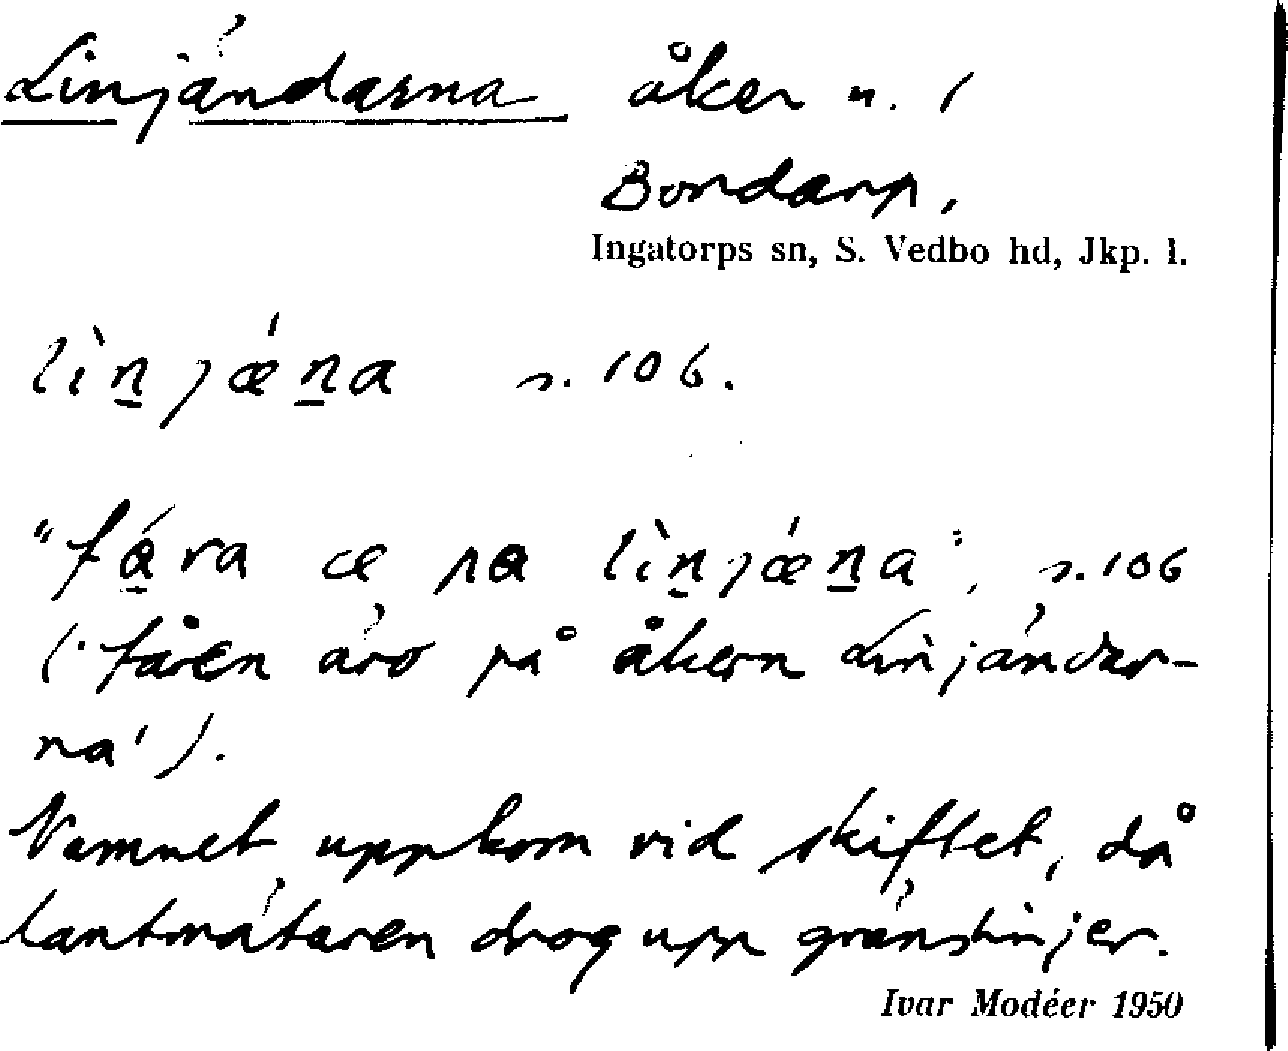 Linjändarna åker n. 1
Bondarp,
Ingatorps sn, S. Vedbo hd, Jkp. l.
lìn̲jǽn̲a s. 106.
"fá̲ra æ pa lìn̲jǽn̲a", s. 106
('fåren äro på åkern Linjändar-
na').
Namnet uppkom vid skiftet, då
lantmätaren drog upp gränslinjer.
Ivar Modéer 1950